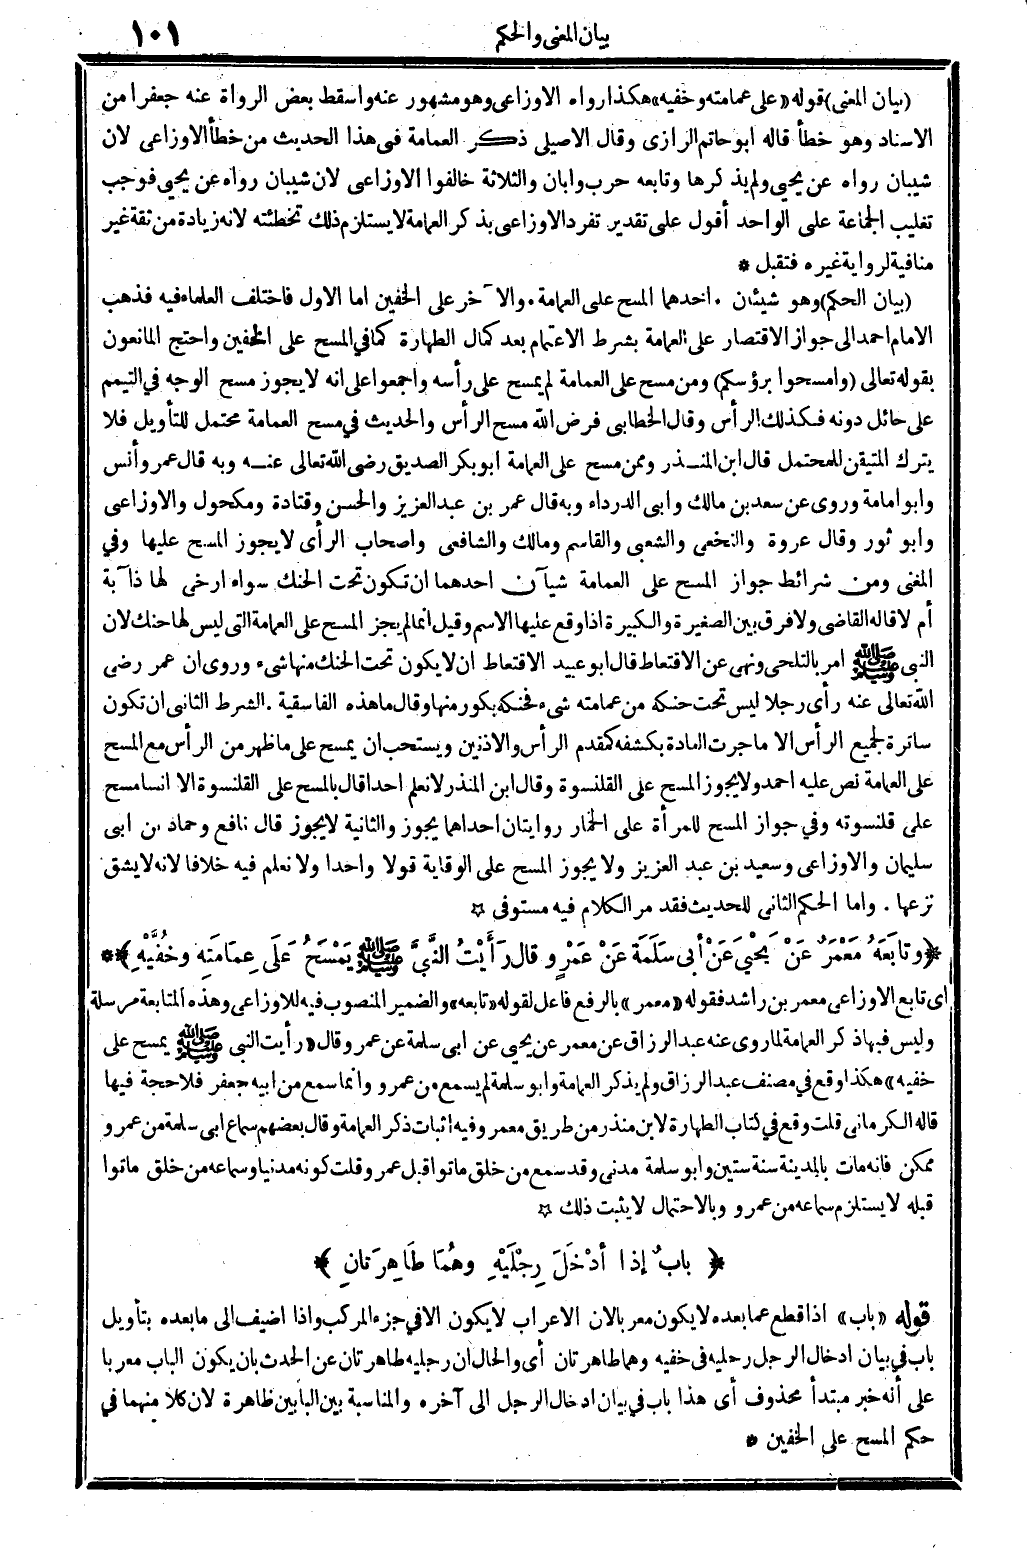 بيان المعنى والحكم ١٠١
(بيان المعنى) قوله «على عمامته وخفيه» هكذا رواه الاوزاعى وهو مشهور عنه واسقط بعض الرواة عنه جعفرا من
الاسناد وهو خطأ قاله ابو حاتم الرازى وقال الاصيلى ذكر العمامة فى هذا الحديث من خطأ الاوزاعى لان
شيبان رواه عن يحيى ولم يذكرها وتابعه حرب وابان والثلاثة خالفوا الاوزاعى لان شيبان رواه عن يحيى فوجب
تغليب الجماعة على الواحد أقول على تقدير تفرد الاوزاعى بذكر العمامة لا يستلزم ذلك تخطئته لانه زيادة من ثقة غير
منافية لرواية غيره فتقبل *
(بيان الحكم) وهو شيئان . احدهما المسح على العمامة . والآخر على الخفين اما الاول فاختلف العلماء فيه فذهب
الامام احمد الى جواز الاقتصار على العمامة بشرط الاعتمام بعد كمال الطهارة كما فى المسح على الخفين واحتج المانعون
بقوله تعالى (وامسحوا برؤسكم) ومن مسح على العمامة لم يمسح على رأسه واجمعوا على انه لا يجوز مسح الوجه فى التيمم
على حائل دونه فكذلك الرأس وقال الخطابى فرض الله مسح الرأس والحديث فى مسح العمامة محتمل للتأويل فلا
يترك المتيقن للمحتمل قال ابن المنذر وممن مسح على العمامة ابو بكر الصديق رضى الله تعالى عنه وبه قال عمر وأنس
وابو امامة وروى عن سعد بن مالك وابى الدرداء وبه قال عمر بن عبد العزيز والحسن وقتادة ومكحول والاوزاعى
وأبو ثور وقال عروة والنخعى والشعبى والقاسم ومالك والشافعى واصحاب الرأى لا يجوز المسح عليها وفى
المغنى ومن شرائط جواز المسح على العمامة شيآن احدهما ان تكون تحت الحنك سواء ارخى لها ذآبة
أم لا قاله القاضى ولا فرق بين الصغيرة والكبيرة اذا وقع عليها الاسم وقيل انما لم يجز المسح على العمامة التى ليس لها حنك لان
النبى ﷺ امر بالتلحى ونهى عن الاقتعاط قال ابو عبيد الاقتعاط ان لا يكون تحت الحنك منها شىء وروى ان عمر رضى
الله تعالى عنه رأى رجلا ليس تحت حنكه من عمامته شىء فحنكه بكور منها وقال ما هذه الفاسقية . الشرط الثانى ان تكون
ساترة لجميع الرأس الا ما جرت العادة بكشفه كمقدم الرأس والاذنين ويستحب ان يمسح على ما ظهر من الرأس مع المسح
على العمامة نص عليه احمد ولا يجوز المسح على القلنسوة وقال ابن المنذر لا نعلم احدا قال بالمسح على القلنسوة الا انسا مسح
على قلنسوته وفى جواز المسح للمرأة على الخمار روايتان احداهما يجوز والثانية لا يجوز قال نافع وحماد بن ابى
سليمان والاوزاعى وسعيد بن عبد العزيز ولا يجوز المسح على الوقاية قولا واحدا ولا نعلم فيه خلافا لانه لا يشق
نزعها . واما الحكم الثانى للحديث فقد مر الكلام فيه مستوفى ✩
﴿ وتابَعَهُ مَعْمَرٌ عَنْ يَحْيَى عَنْ أبى سَلَمَةَ عَنْ عَمْرٍو قال رَأَيْتُ النَّبِيَّ ﷺ يَمْسَحُ عَلَى عِمَامَتِهِ وخُفَّيْهِ ﴾ *
اى تابع الاوزاعى معمر بن راشد فقوله «معمر» بالرفع فاعل لقوله «تابعه» والضمير المنصوب فيه للاوزاعى وهذه المتابعة مرسلة
وليس فيها ذكر العمامة لما روى عنه عبد الرزاق عن معمر عن يحيى عن ابى سلمة عن عمرو قال «رأيت النبى ﷺ يمسح على
خفيه» هكذا وقع فى مصنف عبد الرزاق ولم يذكر العمامة وابو سلمة لم يسمع من عمرو وانما سمع من ابيه جعفر فلا حجة فيها
قاله الكرمانى قلت وقع فى كتاب الطهارة لابن منذر من طريق معمر وفيه اثبات ذكر العمامة وقال بعضهم سماع ابى سلمة من عمرو
ممكن فانه مات بالمدينة سنة ستين وابو سلمة مدنى وقد سمع من خلق ماتوا قبل عمرو قلت كونه مدنيا وسماعه من خلق ماتوا
قبله لا يستلزم سماعه من عمرو وبالاحتمال لا يثبت ذلك ✩
﴿ بابٌ إذا أدْخَلَ رِجْلَيْهِ وهُمَا طَاهِرَتانِ ﴾
قوله «باب» اذا قطع عما بعده لا يكون معربا لان الاعراب لا يكون الا فى جزء المركب واذا اضيف الى ما بعده بتأويل
باب فى بيان ادخال الرجل رجليه فى خفيه وهما طاهرتان أى والحال أن رجليه طاهرتان عن الحدث بان يكون الباب معربا
على أنه خبر مبتدأ محذوف أى هذا باب فى بيان ادخال الرجل الى آخره والمناسبة بين البابين ظاهرة لان كلا منهما فى
حكم المسح على الخفين *